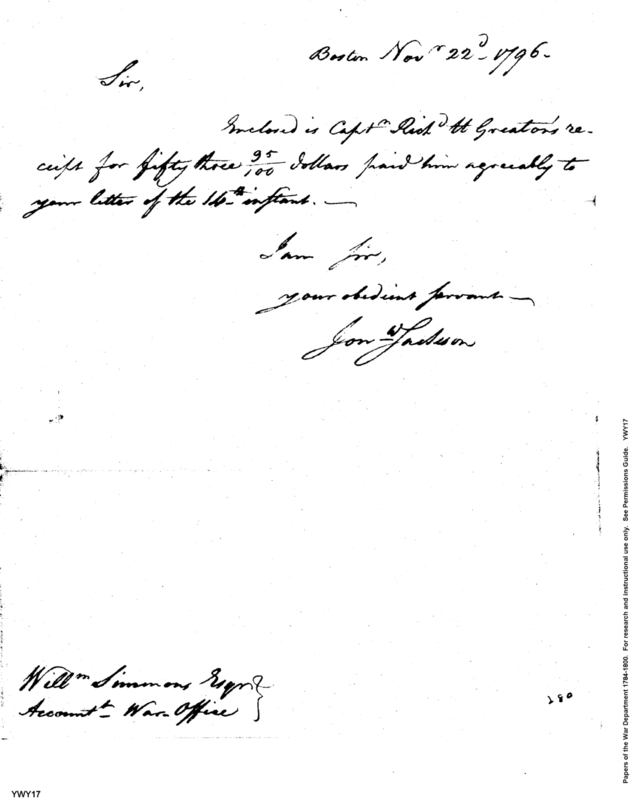 Boston Novr 22d 1796-
Sir,
Enclosed is Captn Richd H Greaton's re-
ceipt for fifty three 95/100 dollars paid him agreeably to
your letter of the 14th instant. —
I am Sir,
your obedient servant —
Jona Jackson
Willm Simmons Esqr
Accountt War-Office
280
YWY17
Papers of the War Department 1784-1800. For research and instructional use only. See Permissions Guide. YWY17